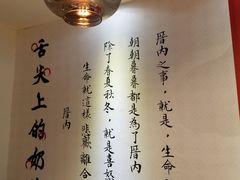 厝内之事，就是，生命
朝朝暮暮都是為了厝内
除了春夏秋冬，就是喜怒
生命就這樣 悲歡離合
厝内
舌尖上的奶